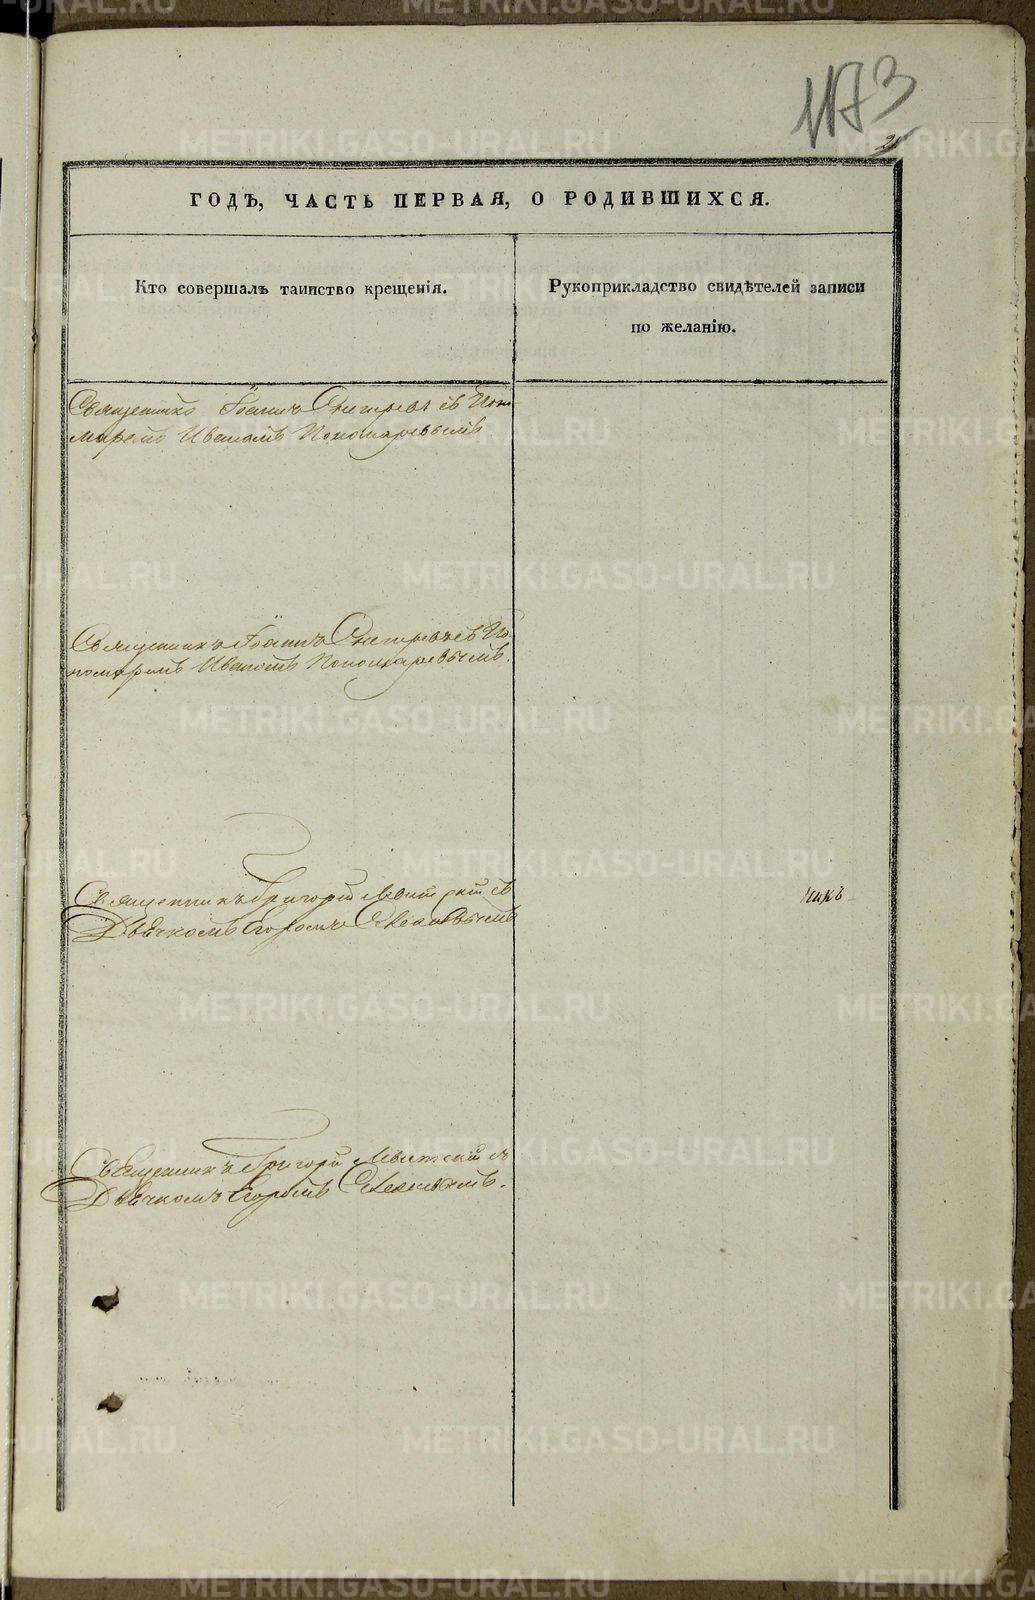 1173
ГОДЪ, ЧАСТЬ ПЕРВАЯ, О РОДИВШИХСЯ.
Кто совершалъ таинство крещенія.
Рукоприкладство свидѣтелей записи
по желанію.
Священникъ Іоаннъ съ Поно
маремъ Иваномъ Пономаревымъ
Священникъ Іоаннъ съ По-
номаремъ Иваномъ Пономаревымъ.
Священникъ Григорій Левитскій съ
Дьячкомъ Егоромъ
Священникъ Григорій Левитскій съ
Дьячкомъ Егоромъ
METRIKI.GASO-URAL.RU